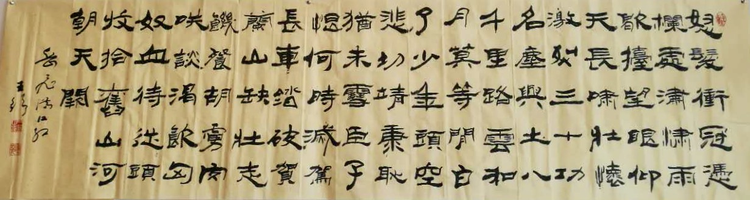 怒髮衝冠憑
欄處瀟潚雨
歇擡望眼仰
天長嘯壯懷
激烈三十功
名塵與土八
千里路雲和
月莫等閒白
了少年頭空
悲切靖康恥
猶未雪臣子
恨何時滅駕
長車踏破賀
蘭山缺壯志
饑餐胡虜肉
咲談渴飲匈
奴血待從頭
收拾舊山河
朝天闕
岳飛滿江紅